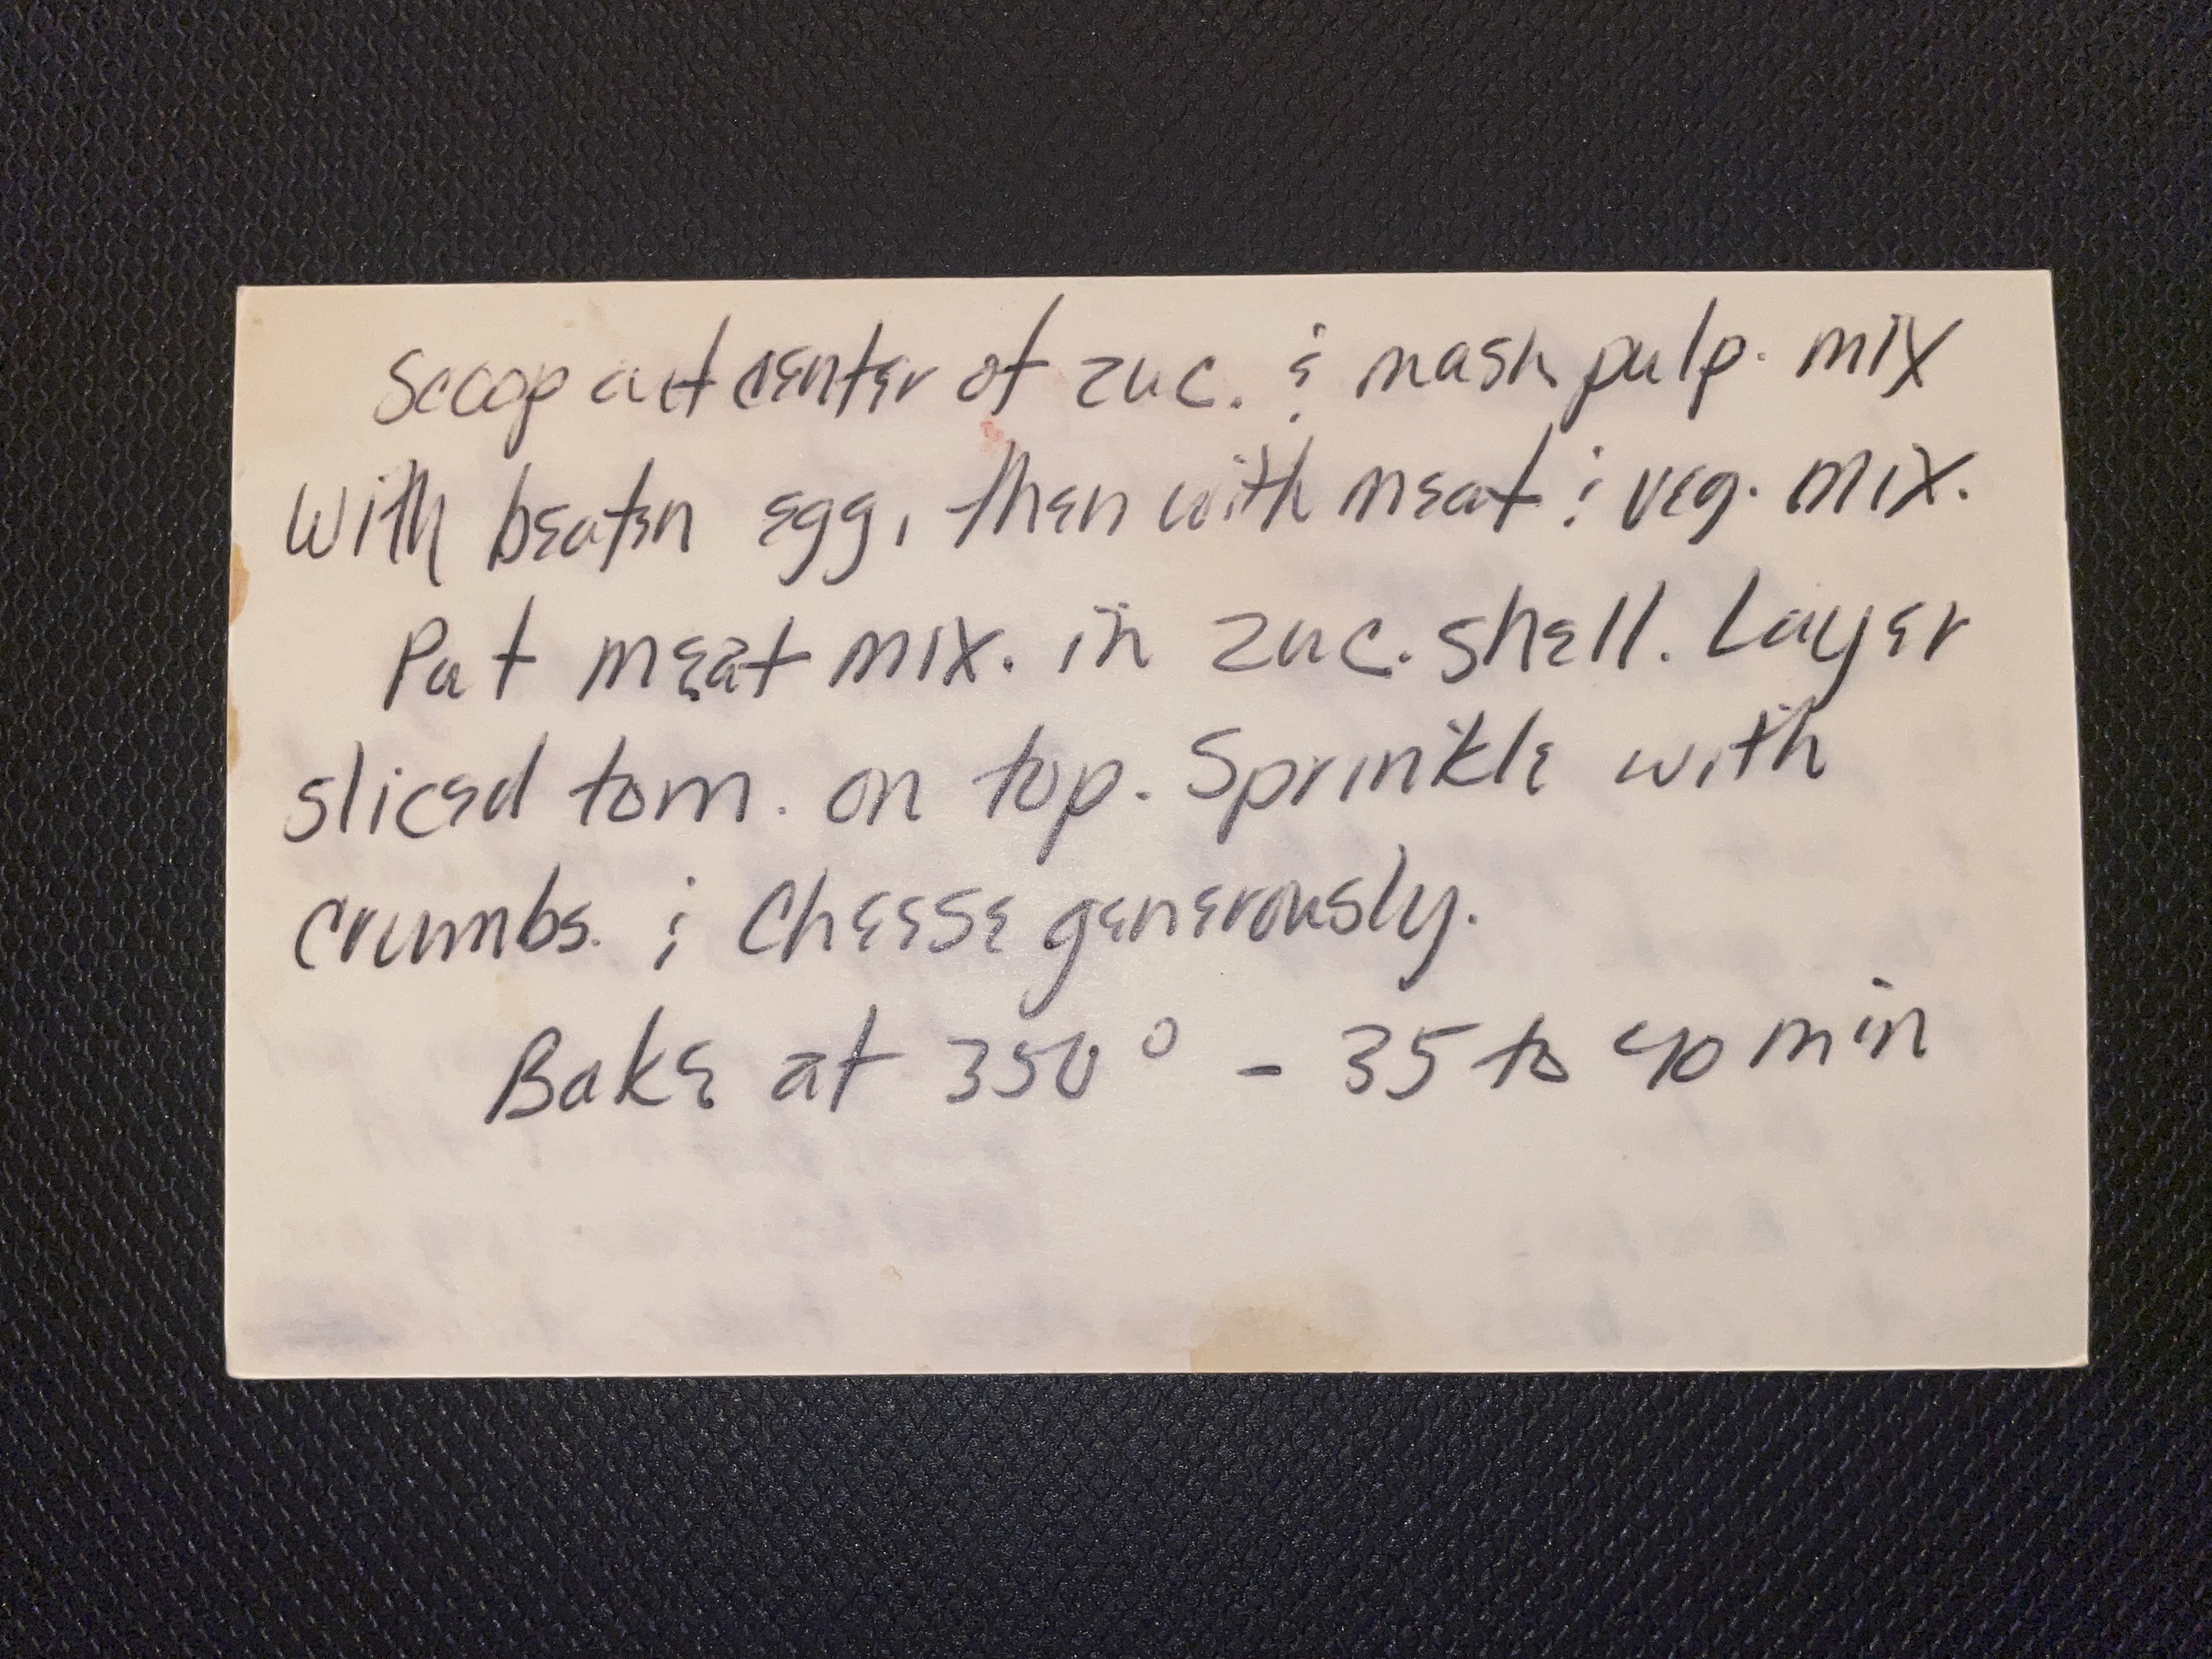 Scoop out center of zuc. & mash pulp. mix
with beaten egg, then with meat & veg. mix.
Put meat mix. in zuc. shell. Layer
sliced tom. on top. Sprinkle with
crumbs. & cheese generously.
Bake at 350° - 35 to 40 min